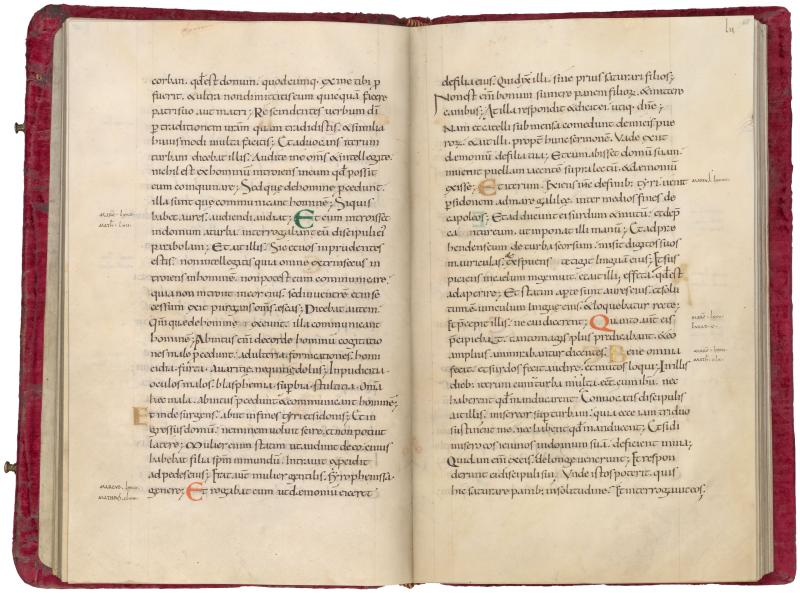 corban. qd est donum. quodcumq. ex me tibi p
fuerit. & ultra non dimittitis eum quicquā facere
patri suo aut matri; Rescindentes verbum dī
p traditionem urām quam tradidistis. & similia
huius modi multa facitis; Et advocans iterum
turbam dicebat illis. Audite me omīs & intellegite.
nehil est ex hominum introiens in eum qd possit
eum coinquinare; Sed que de homine pcedunt.
illa sunt que communicant hominē; Si quis
habet aures. audiendi. audiat; Et cum introisset
in domum a turba. interrogabant eū discipuli eī
parabolam; Et ait illis. Sic et vos inprudentes
estis. non intellegitis quia omne extrinsecus in
troiens in hominē. non potest eum communicare.
quia non intravit in cor eius. sed in ventrē et in se
cessum exit purgans omīs escas; Dicebat autem.
Qm que de homine exeunt. illa communicant
hominē; Ab intus eīm de corde hominū cogitatio
nes male pcedunt. adulteria. fornicationes. homi
cidia. furta. avaritie. nequitie. dolus; Inpudicitia.
oculos malos. blasphemia. supbia. stultitia. Omīa
hec mala. ab intus pcedunt & communicant hominē;
Et inde surgens. abiit in fines tyri et sidonis; Et in
gressus domū. neminem voluit scire. et non potuit
latere; Mulier enim statim ut audivit de eo. cuius
habebat filia spm inmundū. Intravit & pcidit
ad pedes eius; Erat aut mulier gentilis. syrophenissa
genere; Et rogabat eum ut demonium eiceret
lii
de filia eius. Qui dixit illi. sine prius saturari filios;
Non est eīm bonum sumere panem filior. & mittere
canibus; At illa respondit & dicit ei. utiq. dne;
Nam et catelli sub mensa comedunt de micis pue
ror. & ait illi. propt hunc sermonē. vade exiit
demonium de filia tua; Et cum abisset domū suam.
invenit puellam iacentē supra lectū. & demonium
exisse; Et iterum. Exiens de finib. tyri. venit
p sidonem ad mare galilee. inter medios fines de
capoleos; Et adducunt ei surdum & mutū. et dep
cantur eum. ut imponat illi manū; Et adpre
hendens eum de turba seorsum. misit digitos suos
in auriculas. & expuens tetigit linguā eius; Et sus
piciens in celum ingemuit. et ait illi. effeta. qd est
ad aperire; Et statim apte sunt aures eius. et solu
tum ē vinculum lingue eius. & loquebatur recte;
Et pcepit illis. ne cui dicerent; Quanto aut eis
pcipiebat. tanto magis plus predicabant. & eo
amplius ammirabantur dicentes. Bene omnia
fecit. et surdos fecit audire. et mutos loqui; In illis
dieb. iterum cum turba multa eēt cum ihu. nec
haberent qd manducarent; Convocatis discipulis
ait illis. misereor sup turbam. quia ecce iam triduo
sustinent me. nec habent qd manducent; Et si di
misero eos ieiunos in domum suā. deficient in via;
Quidam eīm ex eis. de longe venerunt; Et respon
derunt ei discipuli sui. Unde istos poterit quis
hic saturare panib; in solitudine. Et interrogavit eos;